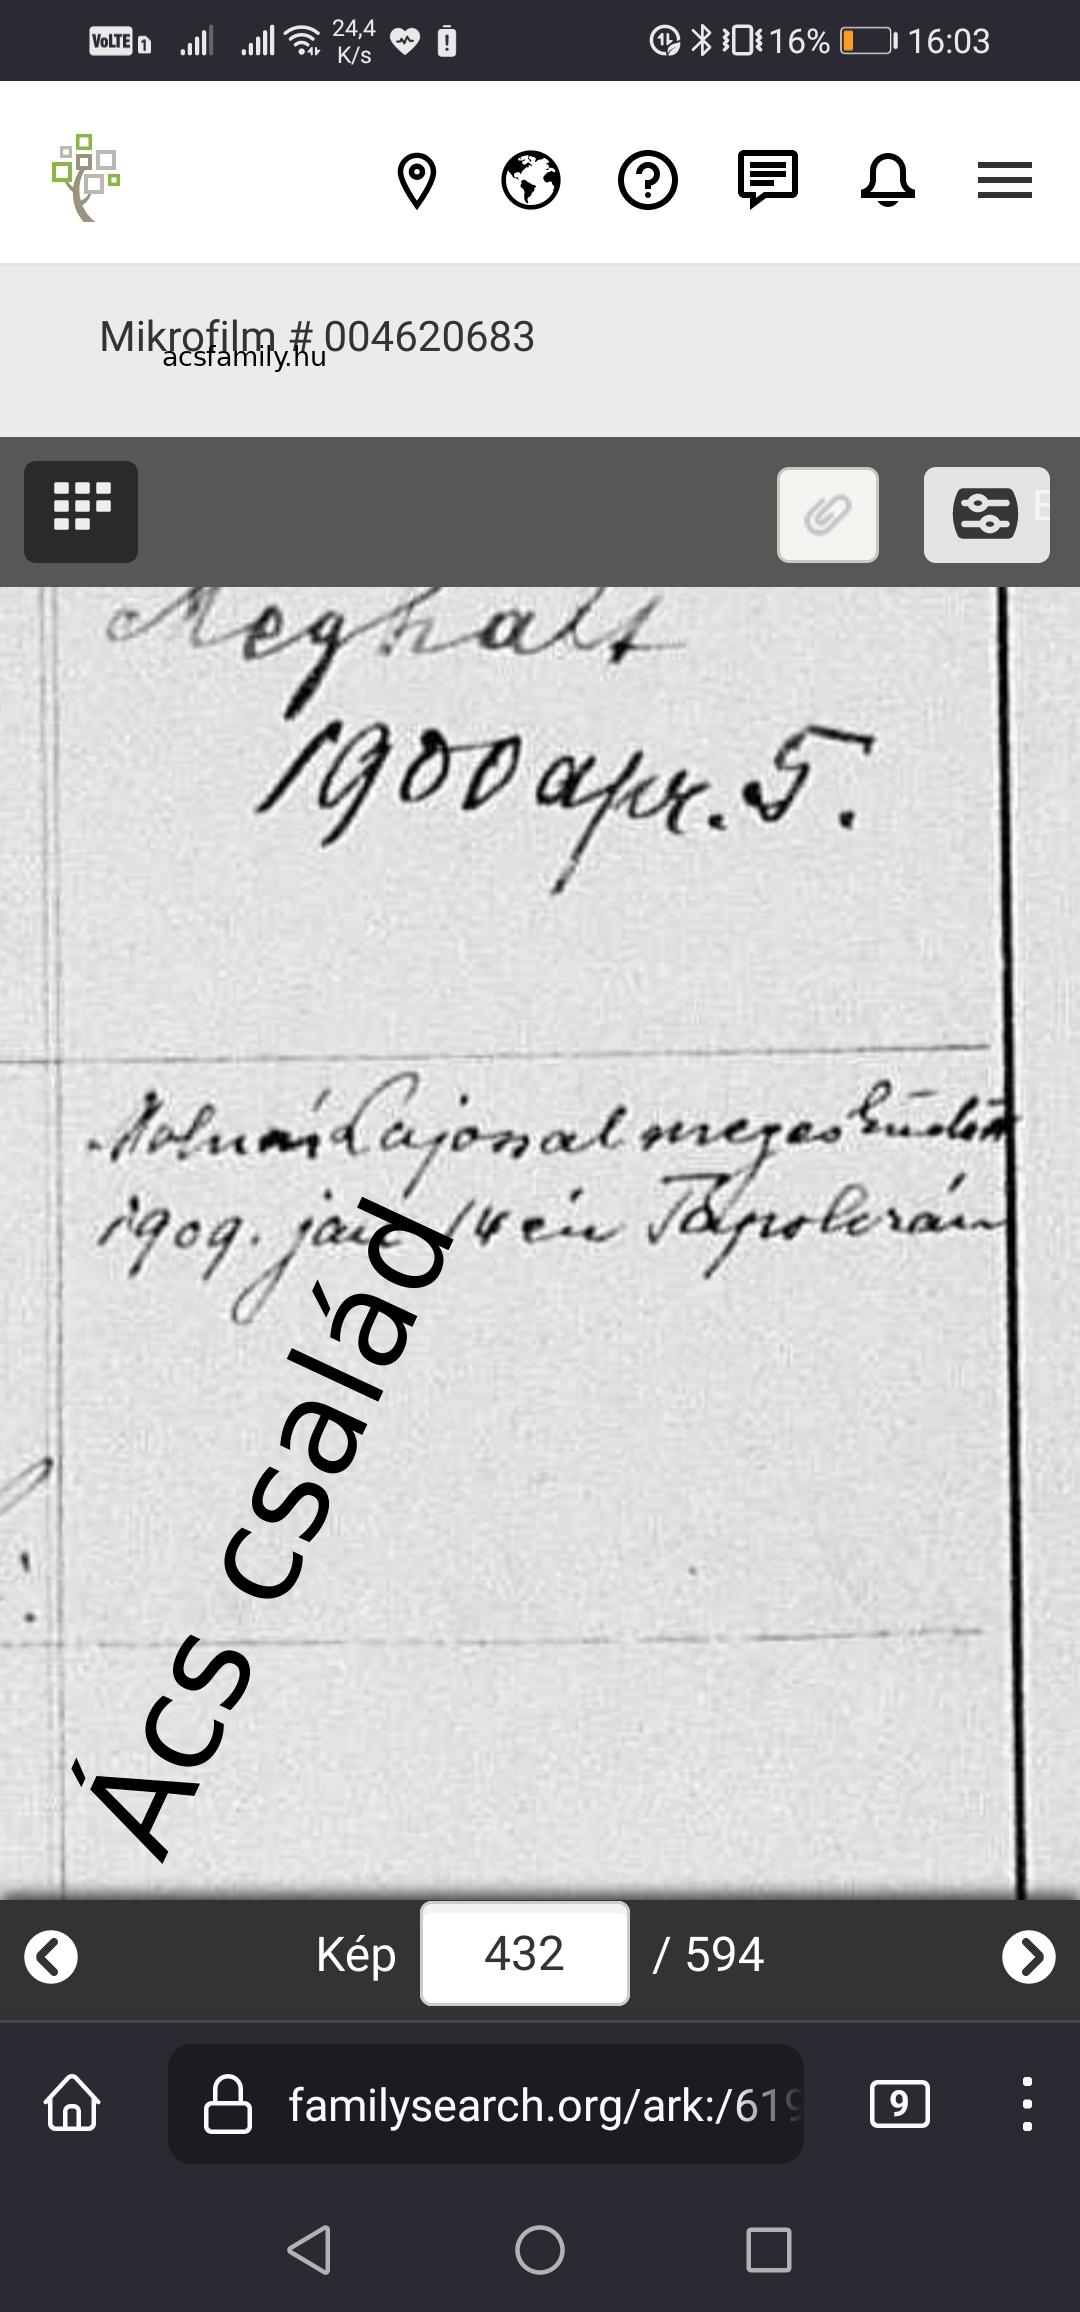 VoLTE 1 24,4 K/s 16% 16:03
Mikrofilm # 004620683
acsfamily.hu
Meghalt
1900 apr. 5.
Molnár Lajossal megesküdött
1909. jan 14 én Tapolczán
Ács család
Kép 432 / 594
familysearch.org/ark:/619
9